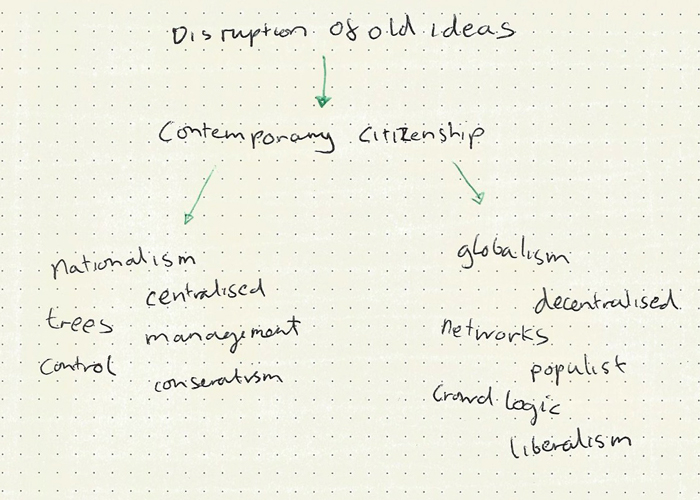 Disruption of old ideas
Contemporary citizenship
nationalism
centralised
trees
management
control
conseratvsm
globalism
decentralised.
networks
populist
Crowd logic
liberalism